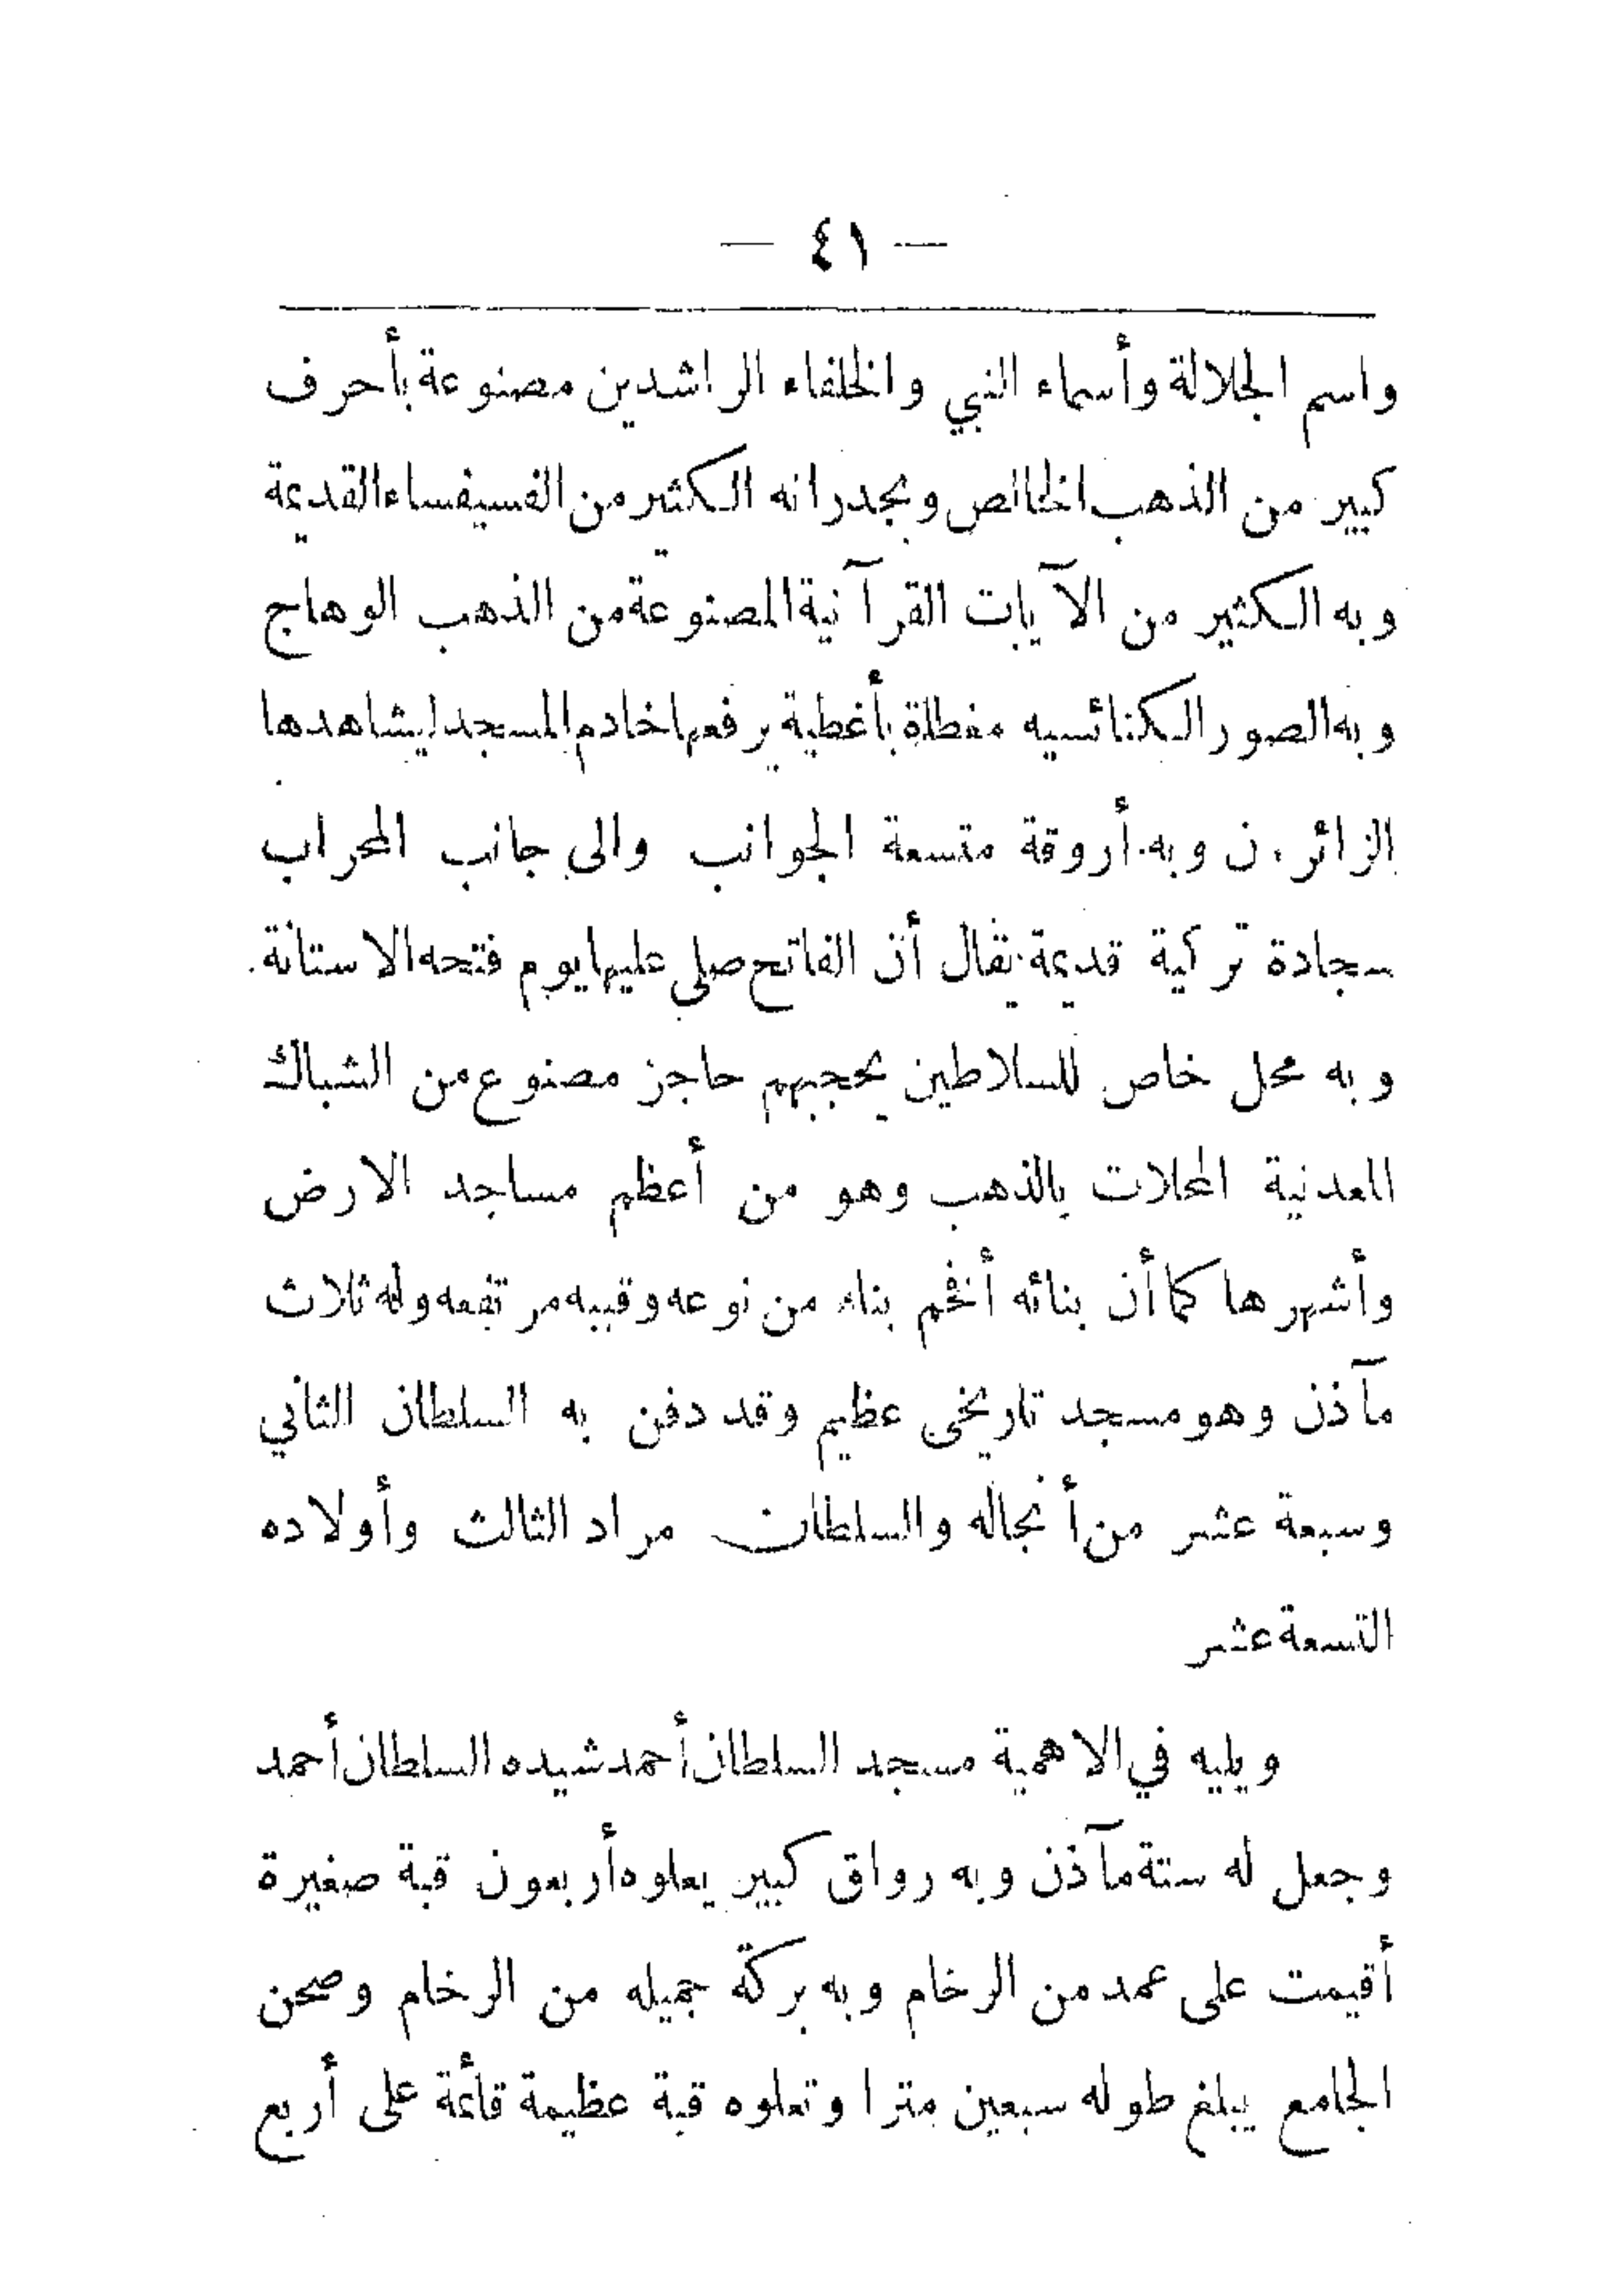 — ٤١ —
واسم الجلالة وأسماء النبي والخلفاء الراشدين مصنوعة بأحرف
كبير من الذهب الخالص وبجدرانه الكثير من الفسيفساء القديمة
وبه الكثير من الآيات القرآنية المصنوعة من الذهب الوهاج
وبه الصور الكنائسيه مغطاة بأغطية يرفعها خادم المسجد ليشاهدها
الزائرين وبه أروقة متسعة الجوانب والى جانب المحراب
سجادة تركية قديمة يقال أن الفاتح صلى عليها يوم فتحه الاستانة
وبه محل خاص للسلاطين يحجبهم حاجز مصنوع من الشباك
المعدنية المحلات بالذهب وهو من أعظم مساجد الارض
وأشهرها كما أن بنائه أفخم بناء من نوعه وقببه مرتفعه وله ثلاث
مآذن وهو مسجد تاريخى عظيم وقد دفن به السلطان الثاني
وسبعة عشر من أنجاله والسلطان مراد الثالث وأولاده
التسعة عشر
ويليه في الاهمية مسجد السلطان أحمد شيده السلطان أحمد
وجعل له ستة مآذن وبه رواق كبير يعلوه أربعون قبة صغيرة
أقيمت على عمد من الرخام وبه بركة جميله من الرخام وصحن
الجامع يبلغ طوله سبعين مترا وتعلوه قبة عظيمة قائمة على أربع